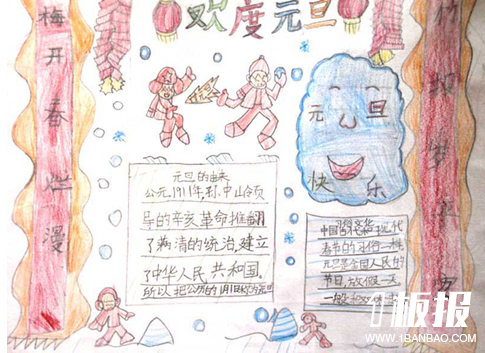 欢度元旦
梅开春烂漫
竹报岁平安
元旦
快乐
元旦的由来
公元1911年,孙中山领
导的辛亥革命推翻
了满清的统治,建立
了中华人民共和国.
所以把公历的1月1日称为元旦
春节的习俗一样
元旦是全国人民的
节日,放假一天
板报
WWW.1BANBAO.COM